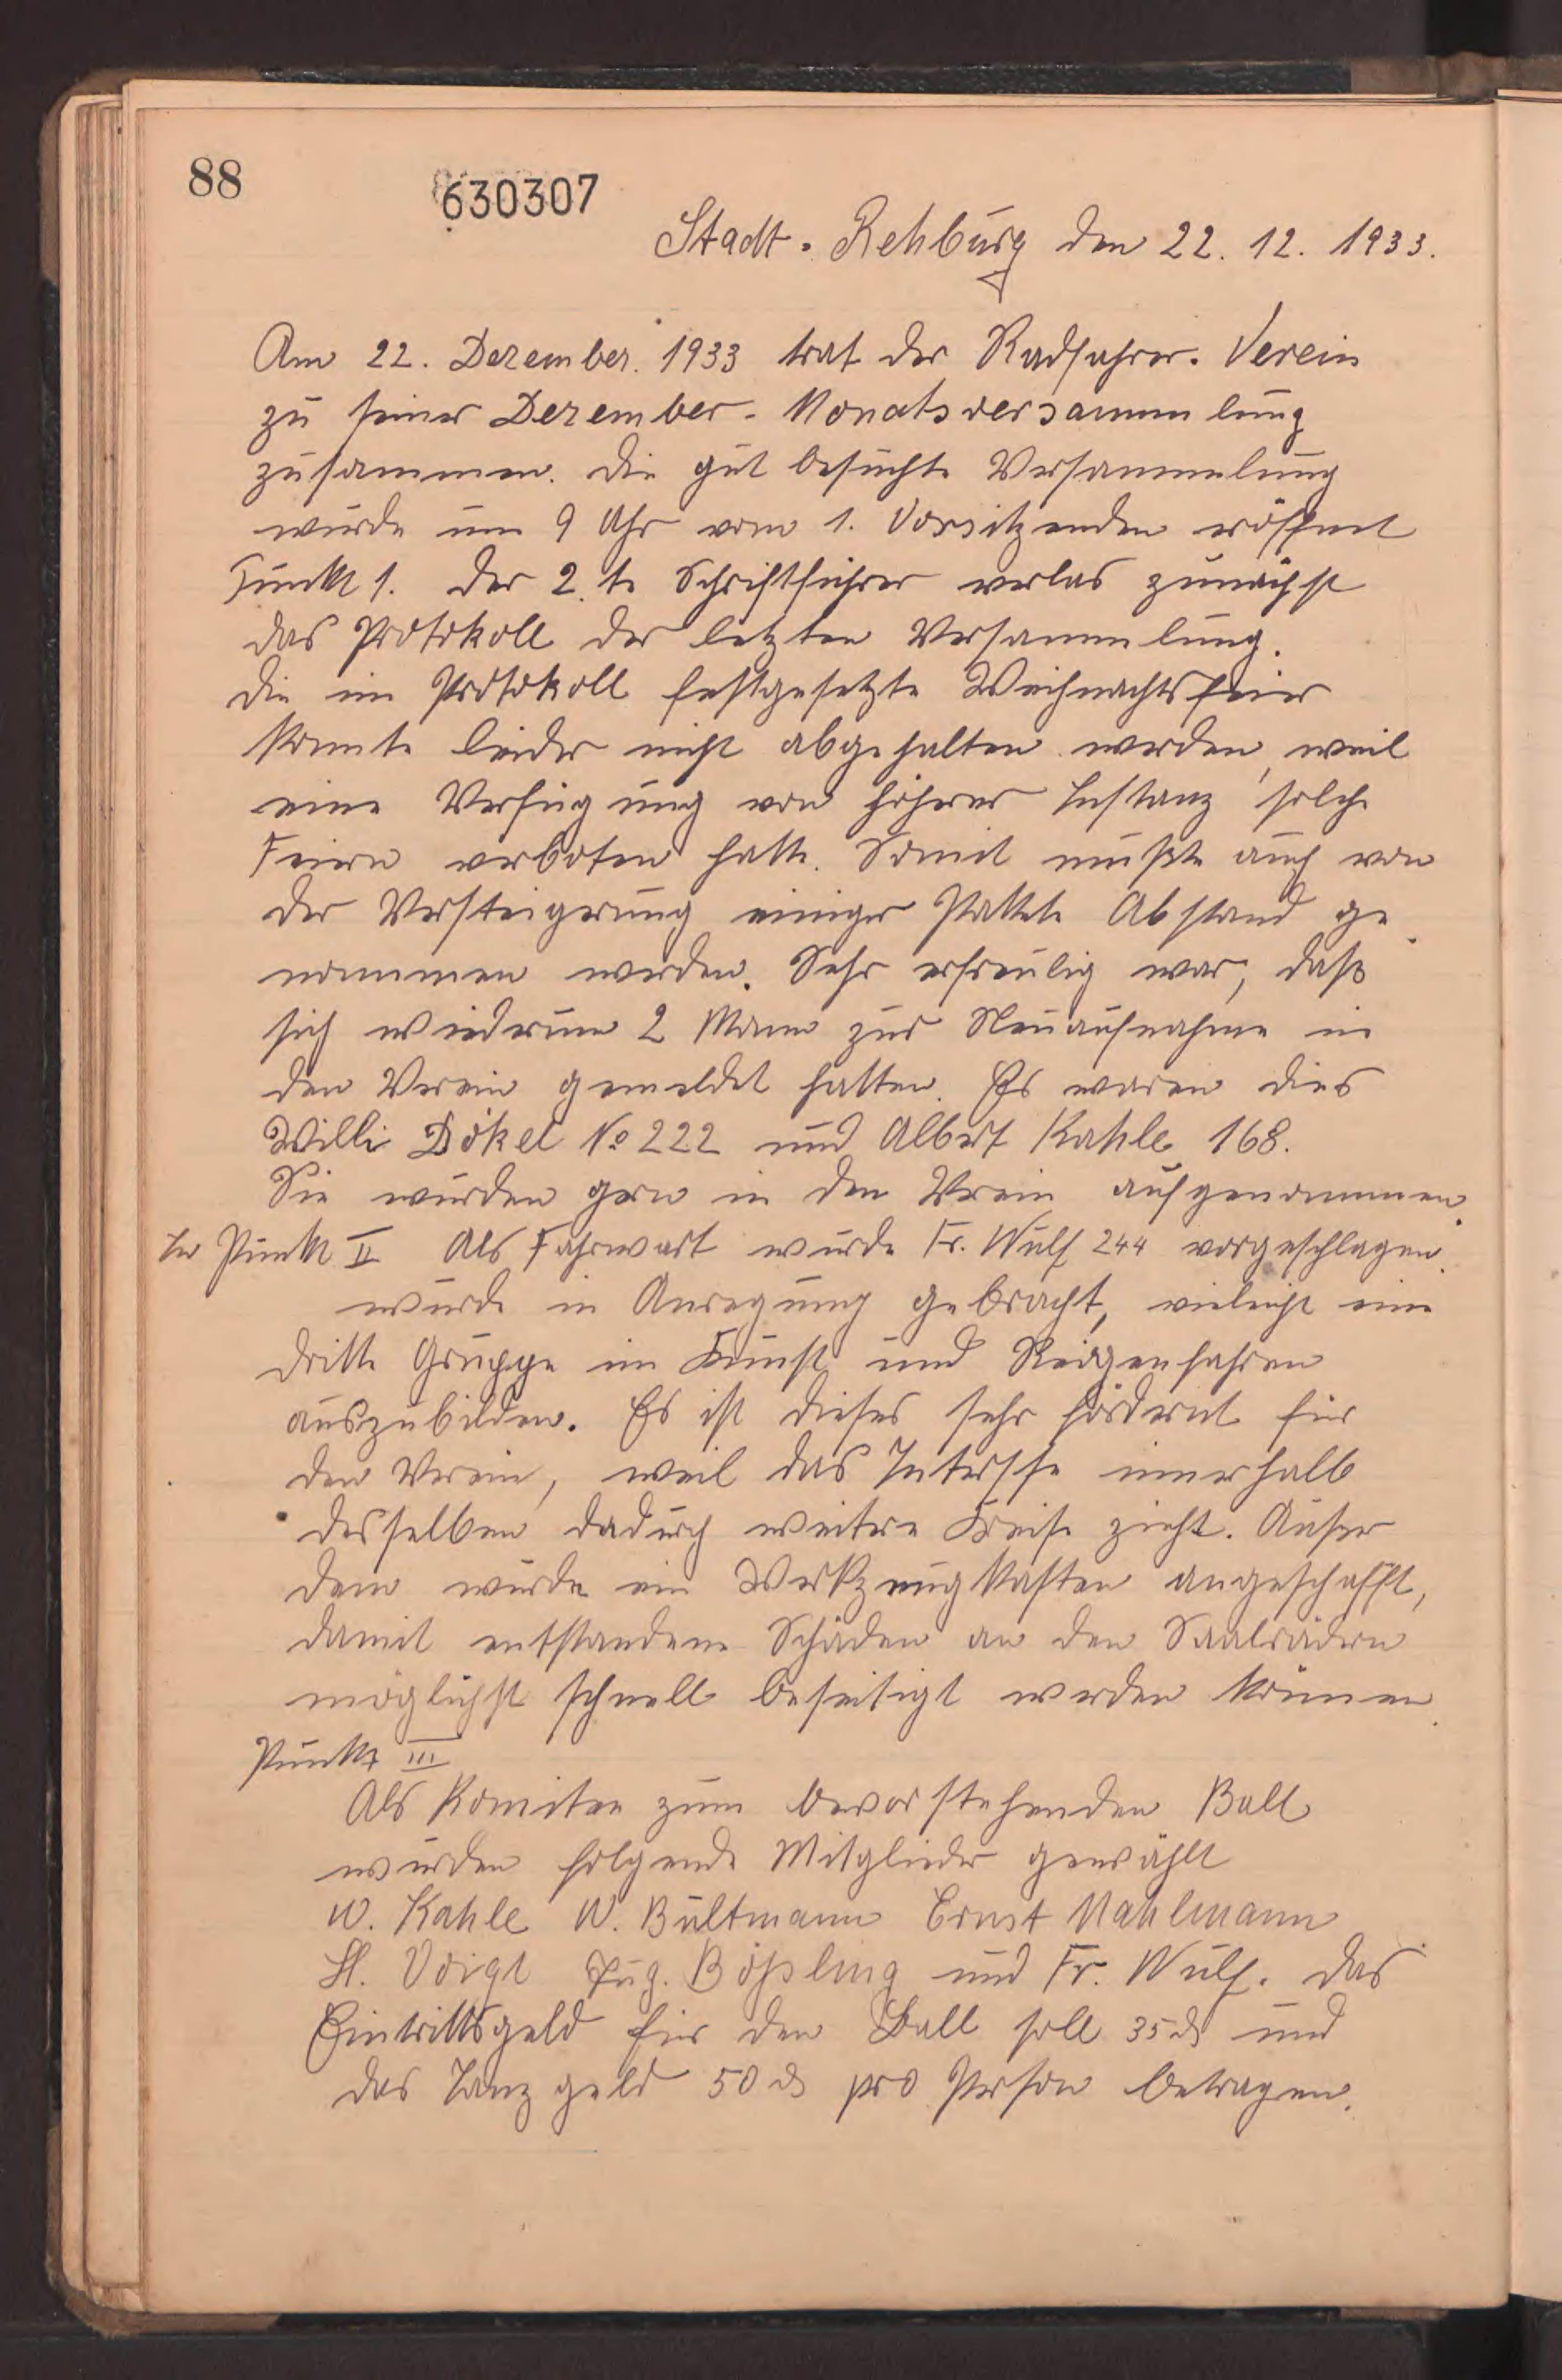 88
630307
Stadt-Rehburg den 22. 12. 1933.
Am 22. Dezember. 1933 trat der Radfahrer-Verein
zu seiner Dezember-Monatsversammlung
zusammen. Die gut besuchte Versammlung
wurde um 9 Uhr vom 1. Vorsitzenden eröffnet
Punkt 1. Der 2.te Schriftführer verlas zunächst
das Protokoll der letzten Versammlung.
Die im Protokoll festgesetzte Weihnachtsfeier
konnte leider nicht abgehalten werden, weil
eine Verfügung von höherer Instanz solche
Feiern verboten hatte. Somit mußte auch von
der Versteigerung einiger Pakete Abstand ge
nommen werden. Sehr erfreulig war, daß
sich wiederum 2 Mann zur Neuaufnahme in
den Verein gemeldet hatten. Es waren dies
Willi Dökel No 222 und Albert Kahle 168.
Sie wurden gern in den Verein aufgenommen.
In Punkt II Als Fahrwart wurde Fr. Wulf 244 vorgeschlagen.
wurde in Anregung gebracht, vieleicht eine
dritte Gruppe im Kunst und Reigenfahren
auszubilden. Es ist dieses sehr fördernt für
den Verein, weil das Intersse innerhalb
desselben dadurch weitere Kreise zieht. Außer
dem wurde ein Werkzeugkasten angeschafft,
damit entstandene Schäden an den Saalrädern
möglichst schnell beseitigt werden können.
Punkt III
Als Komitee zum bevorstehenden Ball
wurden folgende Mitglieder gewählt
W. Kahle W. Bültmann Ernst Mahlmann
H. Voigt Aug. Bößling und Fr. Wulf. Das
Eintrittsgeld für den Ball soll 35 ₰ und
das Tanzgeld 50 ₰ pro Person betragen.